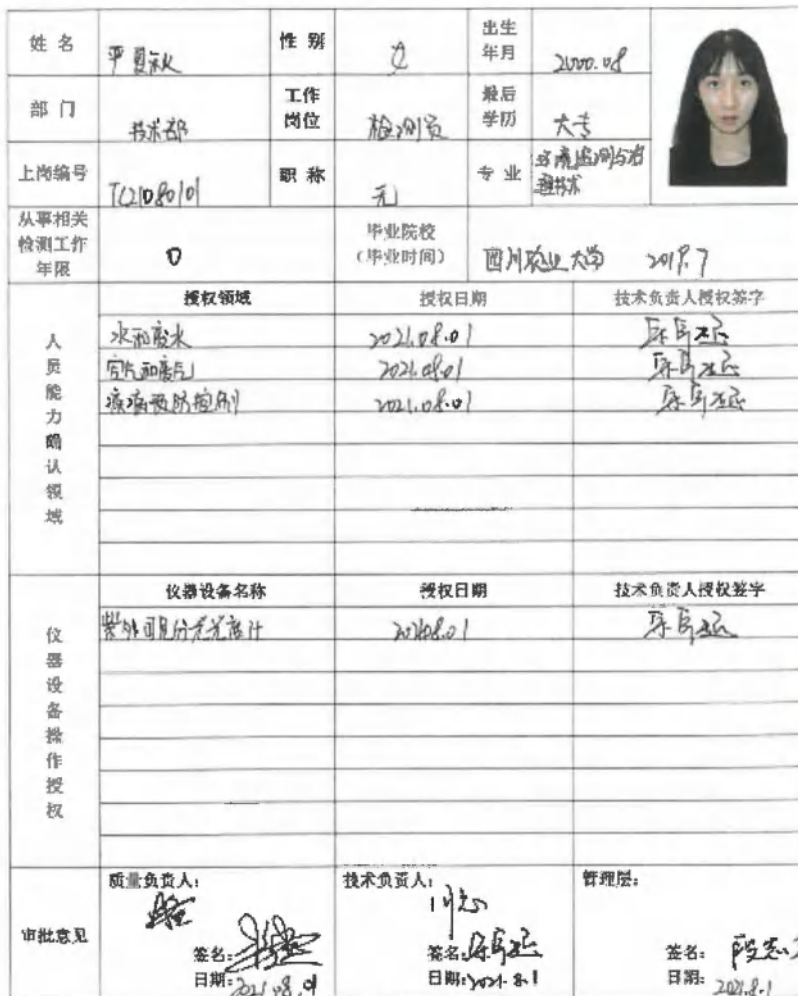 姓 名 严夏秋 性 别 女 出生年月 2000.08
部 门 技术部 工作岗位 检测员 最后学历 大专
上岗编号 TC21080101 职 称 无 专 业 环境监测与治理技术
从事相关检测工作年限 0 毕业院校（毕业时间） 四川农业大学 7
人员能力确认领域
授权领域 授权日期 技术负责人授权签字
水和废水 2021.08.01
空气和废气 2021.08.01
疾病预防控制 2021.08.01
仪器设备操作授权
仪器设备名称 授权日期 技术负责人授权签字
紫外可见分光光度计
审批意见
质量负责人： 技术负责人： 管理层：
同意
签名： 签名： 签名：
日期：2021.08.01 日期：2021.8.1 日期：2021.8.1